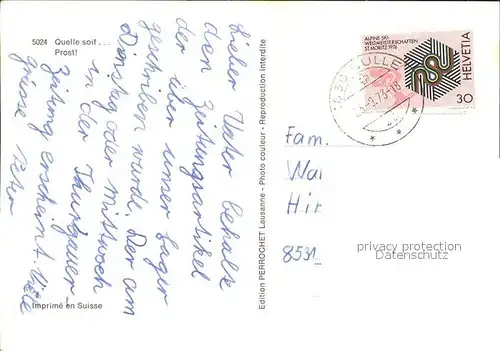 5024 Quelle soif...
Prost!
Lieber Vater behalte
den Zeitungsartikel
der über unser Lager
geschriben wurde. Der am
Dinstag oder mittwoch
in der Thurgauer-
Zeitung erscheint. Viele
grüsse Peter
Imprimé en Suisse
Edition PERROCHET Lausanne - Photo couleur - Reproduction interdite
ALPINE SKI-
WELTMEISTERSCHAFTEN
ST. MORITZ 1974
HELVETIA
30
1630 BULLE
Fam.
Wai
Hir
8531
privacy protection
Datenschutz